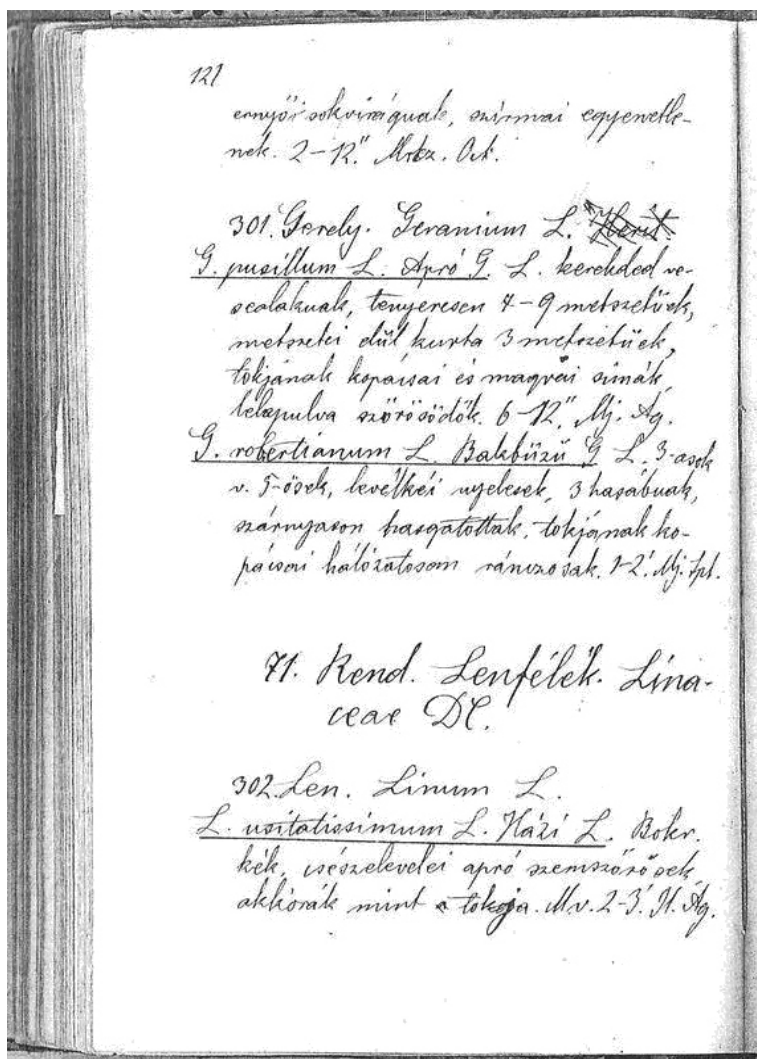 121
ernyői sokviráguak, szirmai egyenetle-
nek. 2–12." Mrtz. Oct.
301. Gerely. Geranium L. Herit.
G. pusillum L. Apró G. L. kerekded ve-
sealakuak, tenyeresen 7–9 metszetüek,
metszetei dül kurta 3 metszetüek,
tokjának kopácsai és magvai simák,
lelapulva szőrösödők. 6–12." Mj. Ag.
G. robertianum L. Bakbüzü G. L. 3-asok
v. 5-ösek, levélkéi nyelesek, 3 hasábuak,
szárnyason hasgatottak, tokjának ko-
pácsai hálózatosan ránczosak. 1–2.' Mj. Spt.
71. Rend. Lenfélék. Lina-
ceae DC.
302. Len. Linum L.
L. usitatissimum L. Házi L. Bokr.
kék, csészelevelei apró szemszőrösek,
akkorák mint a tokja. Mv. 2–3.' Jl. Ág.